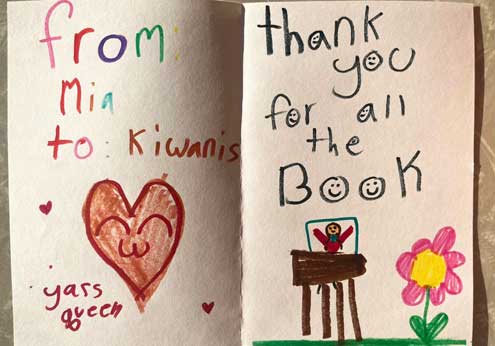 from:
Mia
to: Kiwanis
yars
queen
thank
you
for all
the
BOOK